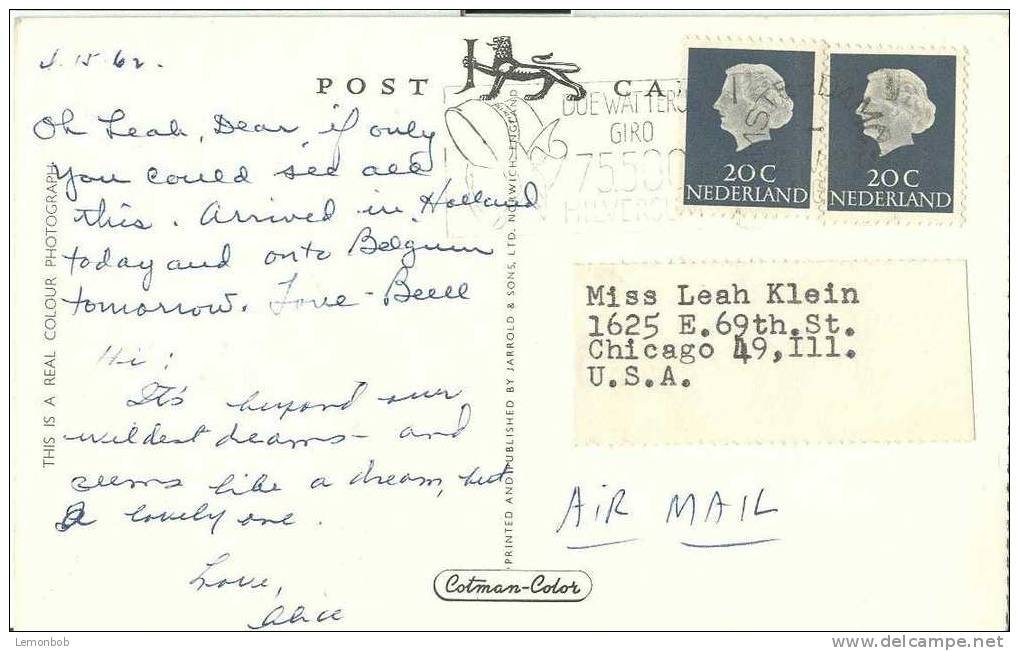 4.15.62.
POST CA
Oh Leah, Dear if only
you could see all
this. Arrived in Holland
today and onto Belgium
tomorrow. Love-
Hi!
It's beyond our
wildest dreams - and
seems like a dream, but
a lovely one.
Love,
Alice
THIS IS A REAL COLOUR PHOTOGRAPH
PRINTED AND PUBLISHED BY JARROLD & SONS, LTD. NORWICH, ENGLAND
DOE WAT TERUG
GIRO
75.500
HILVERSU
20 C
NEDERLAND
20 C
NEDERLAND
Miss Leah Klein
1625 E.69th.St.
Chicago 49,Ill.
U.S.A.
AIR MAIL
Cotman-Color
Lemonbob
www.delcampe.net